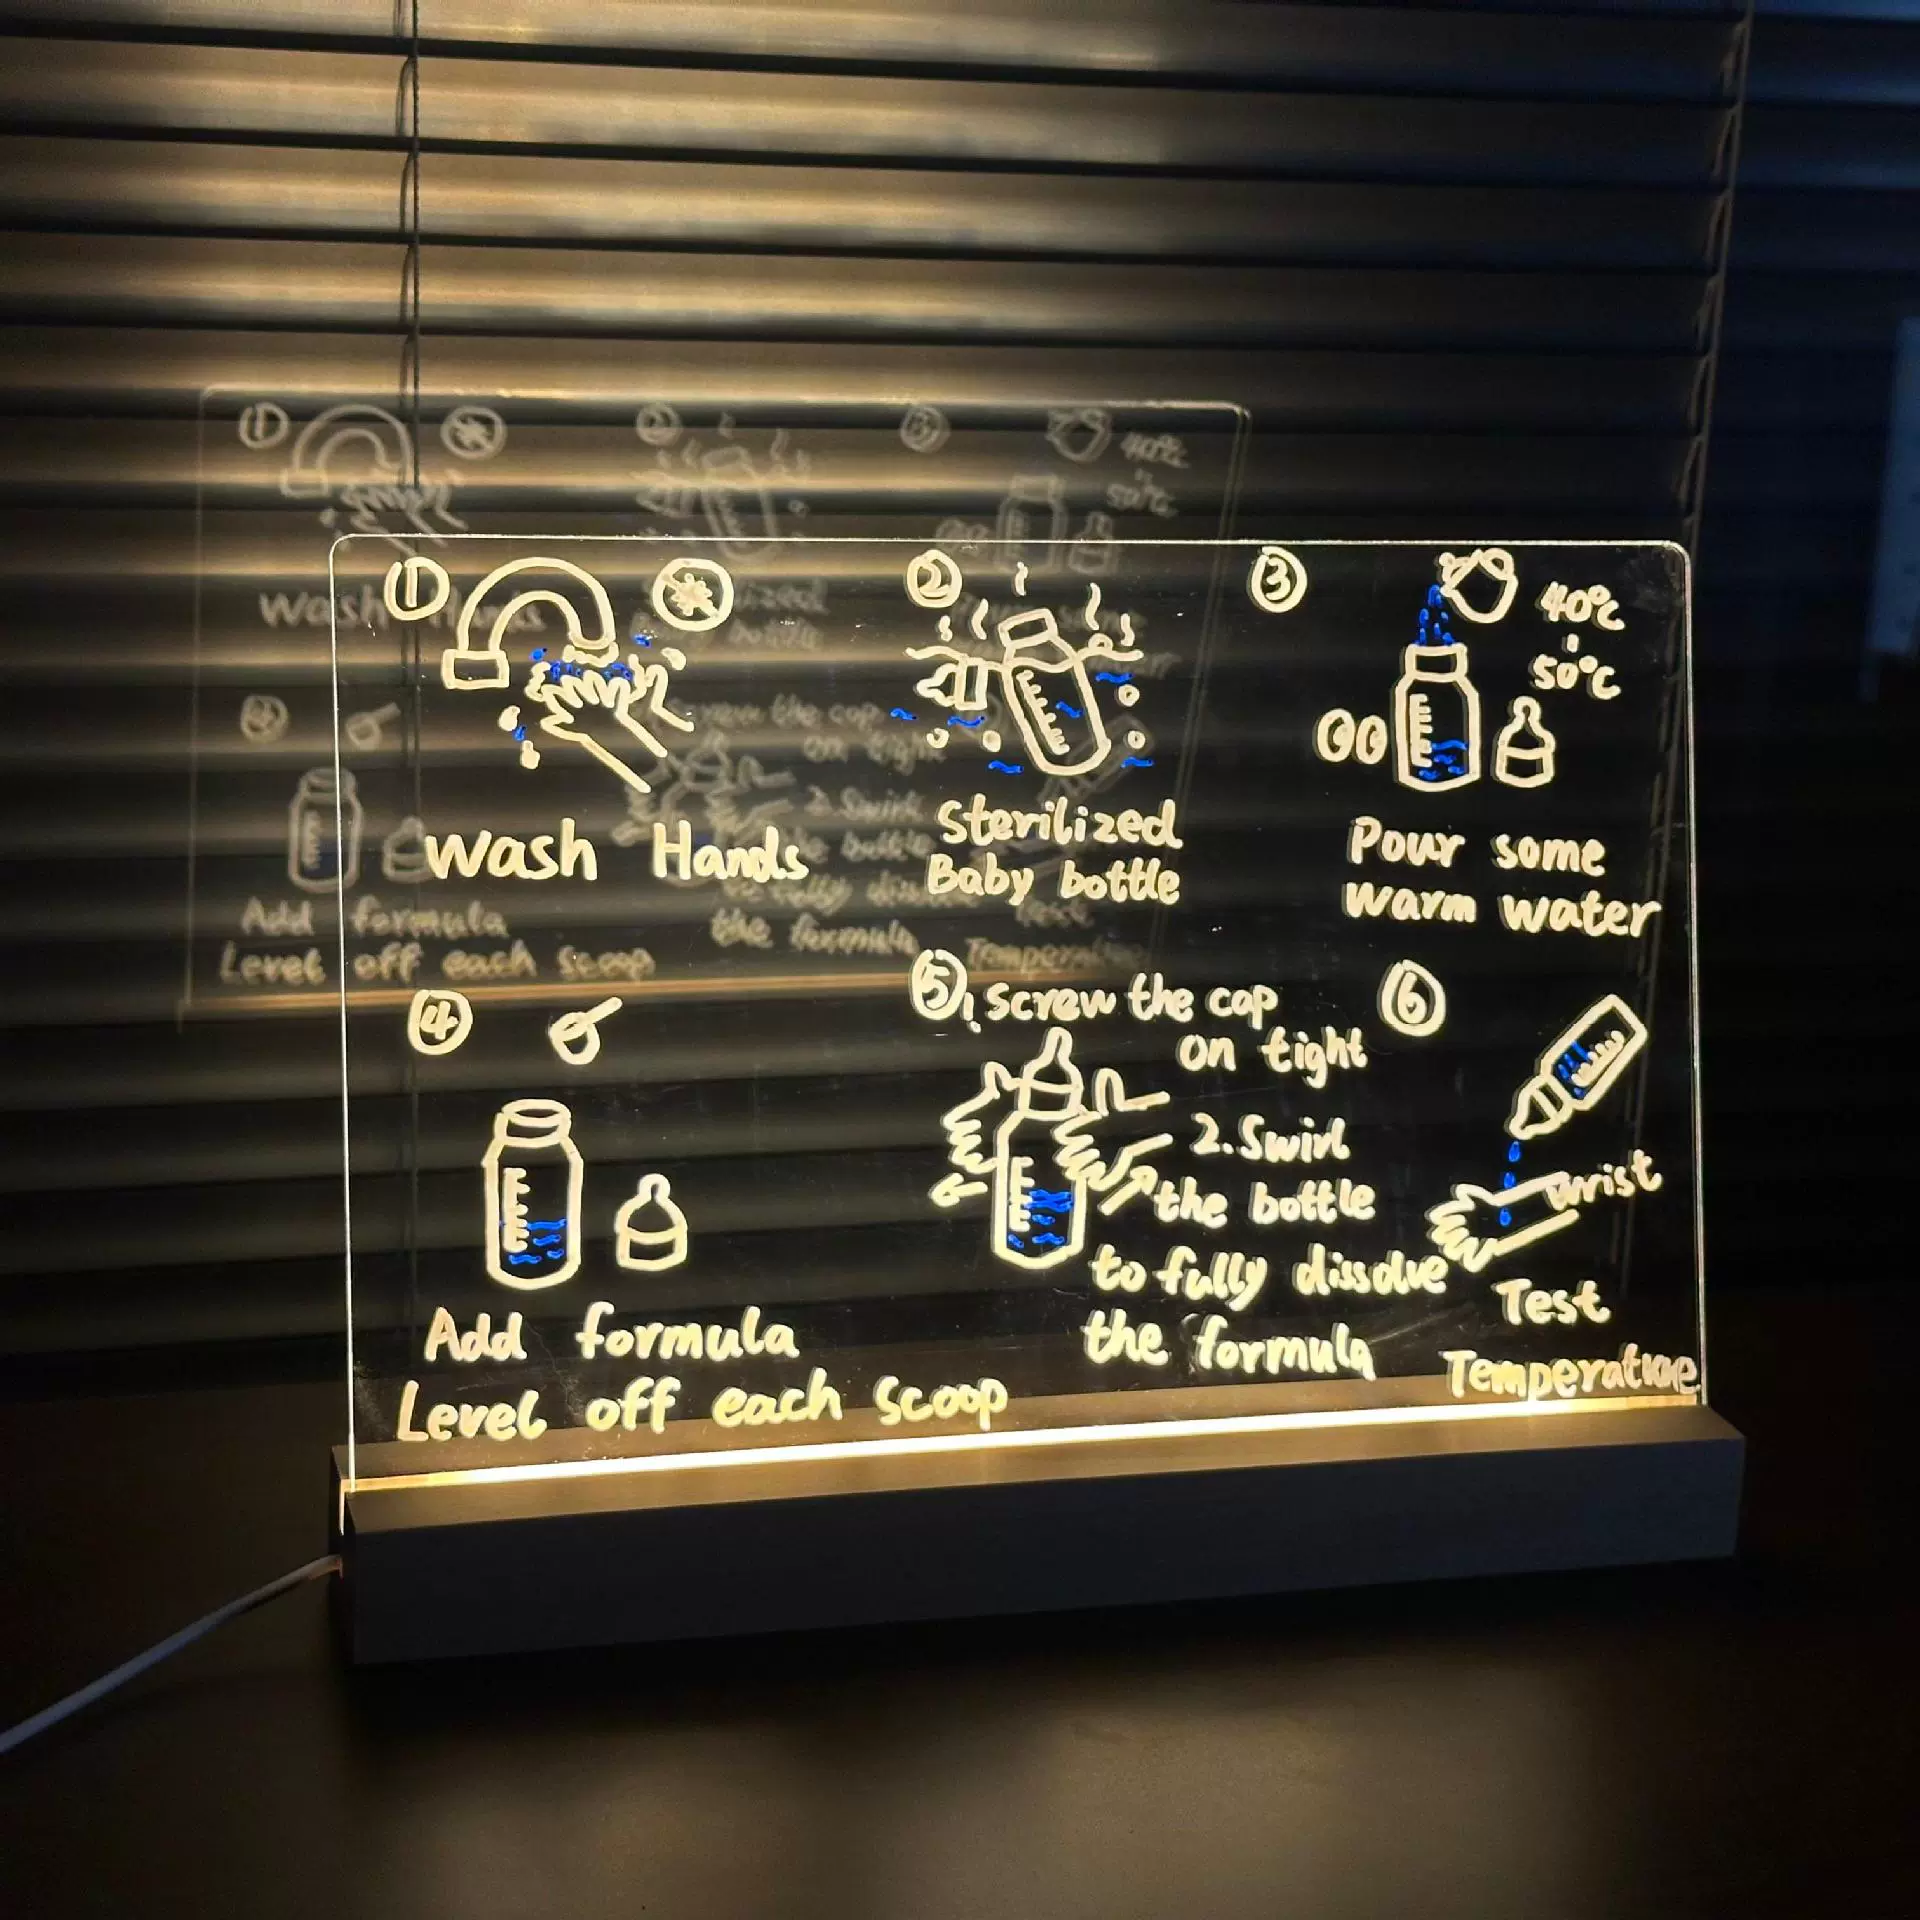 ①
Wash Hands
②
Sterilized
Baby bottle
③
40℃
50℃
Pour some
warm water
④
Add formula
Level off each scoop
⑤
1. Screw the cap
on tight
2. Swirl
the bottle
to fully dissolve
the formula
⑥
wrist
Test
Temperature